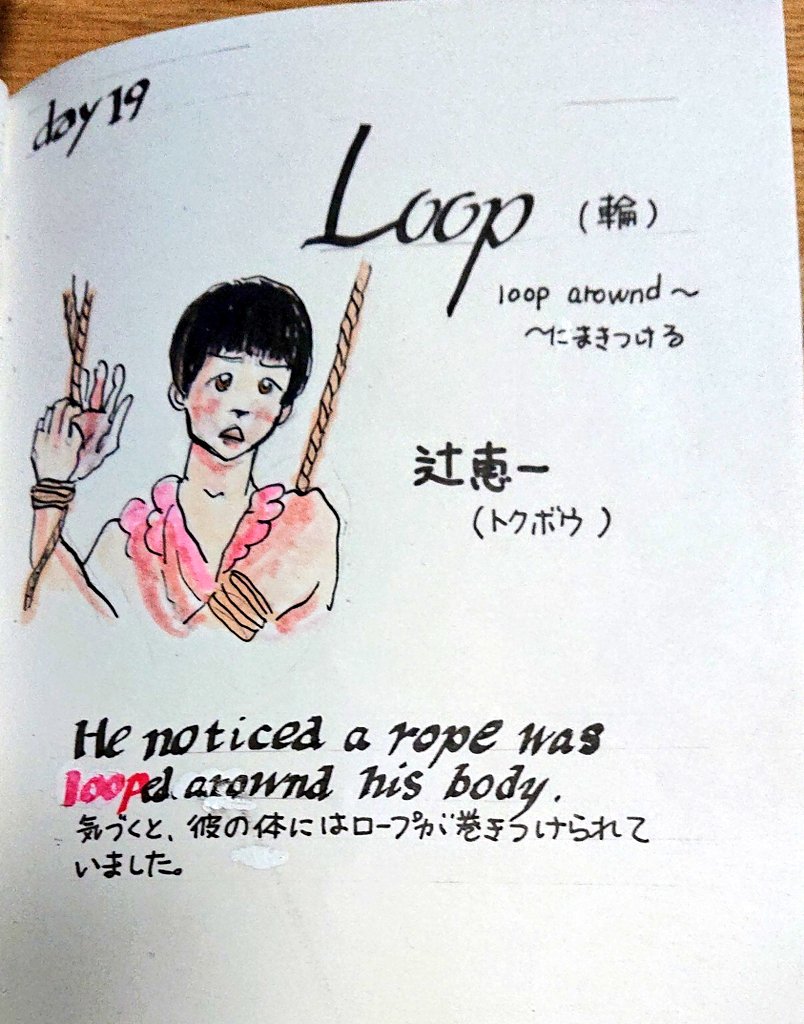 day 19
Loop (輪)
loop around～
～にまきつける
辻恵一
(トクボウ)
He noticed a rope was
looped around his body.
気づくと、彼の体にはロープが巻きつけられて
いました。